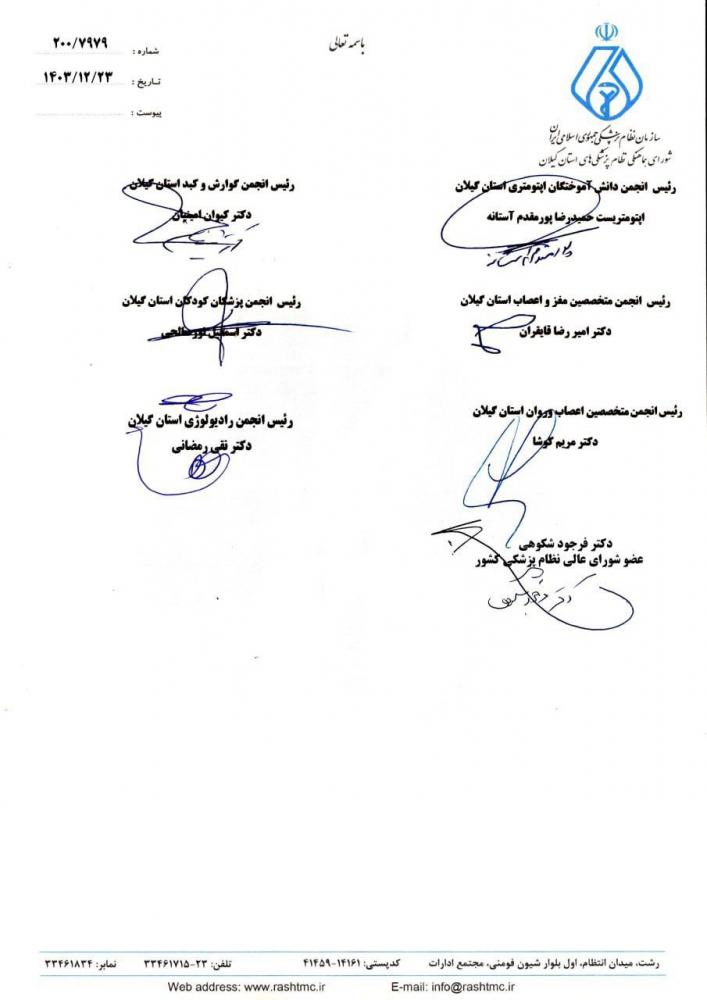 باسمه تعالی
شماره : ۲۰۰/۷۹۷۹
تاریخ : ۱۴۰۳/۱۲/۲۳
پیوست :
سازمان نظام پزشکی جمهوری اسلامی ایران
شورای هماهنگی نظام پزشکی های استان گیلان
رئیس انجمن دانش آموختگان اپتومتری استان گیلان
اپتومتریست حمیدرضا پورمقدم آستانه
رئیس انجمن گوارش و کبد استان گیلان
دکتر کیوان امینیان
رئیس انجمن متخصصین مغز و اعصاب استان گیلان
دکتر امیر رضا قایقران
رئیس انجمن پزشکان کودکان استان گیلان
دکتر اسماعیل نورصالحی
رئیس انجمن متخصصین اعصاب وروان استان گیلان
دکتر مریم کوشا
رئیس انجمن رادیولوژی استان گیلان
دکتر نقی رمضانی
دکتر فرجود شکوهی
عضو شورای عالی نظام پزشکی کشور
رشت، میدان انتظام، اول بلوار شیون فومنی، مجتمع ادارات کدپستی: ۱۴۱۶۱-۴۱۴۵۹ تلفن: ۲۳-۳۳۴۶۱۷۱۵ نمابر: ۳۳۴۶۱۸۳۴
Web address: www.rashtmc.ir E-mail: info@rashtmc.ir